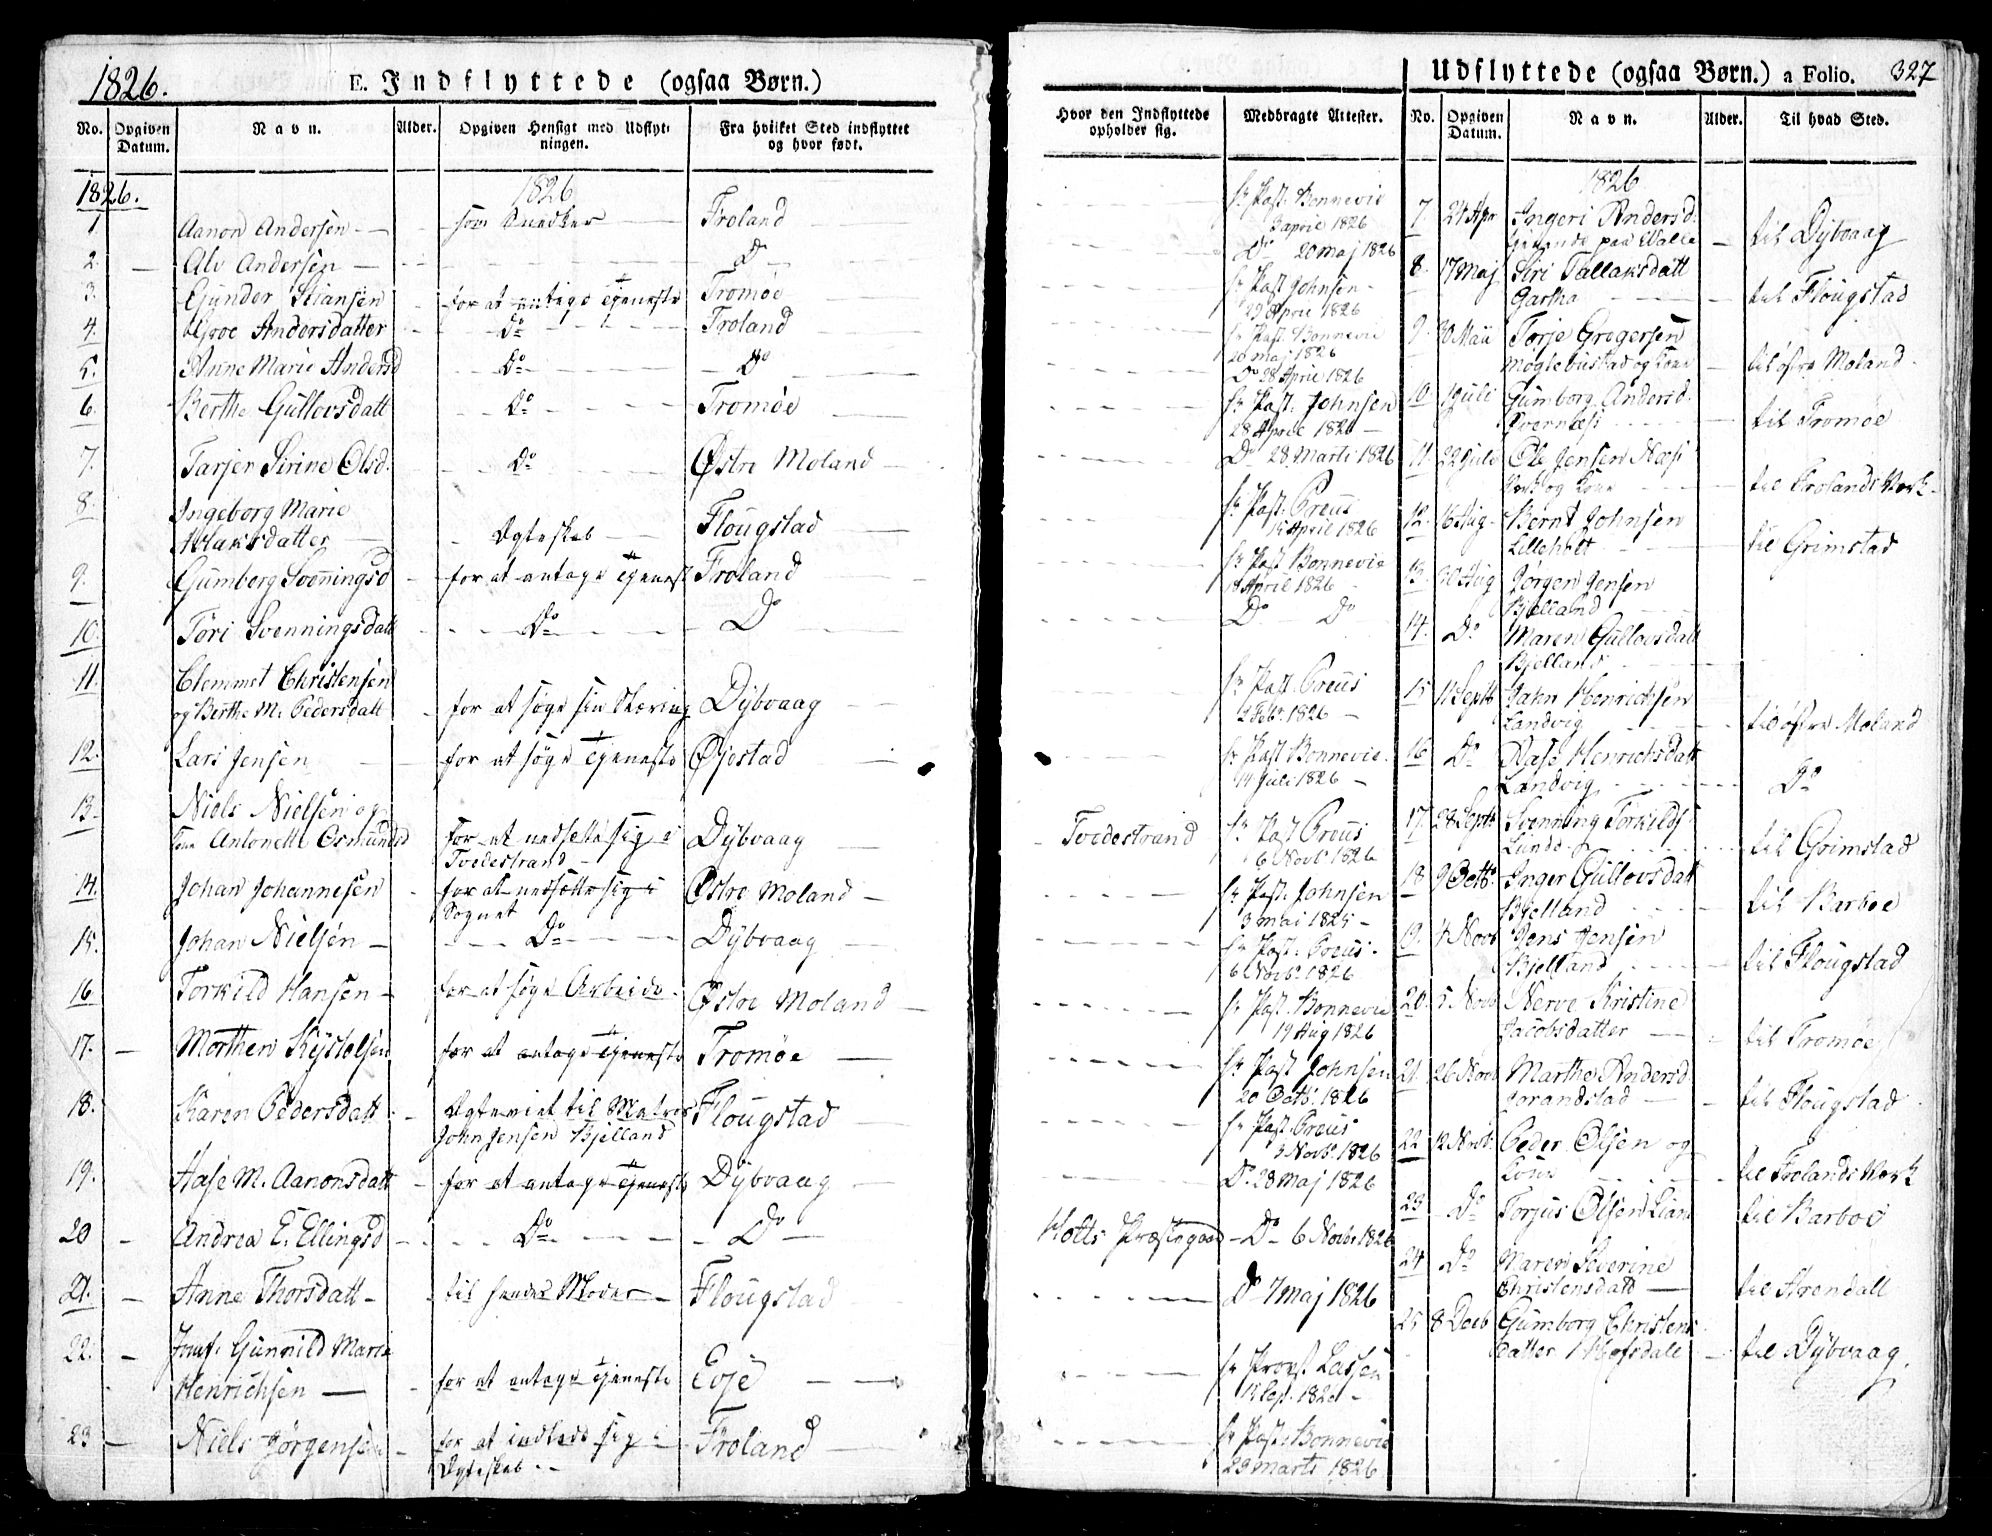 1826. E. Indflyttede (ogsaa Børn.)
No. Opgiven Datum. Navn. Alder. Opgiven Hensigt med Udflytningen. Fra hvilket Sted indflyttet og hvor født.
1826. 1826
1 Aanon Andersen som Snedker Froland
2. Alv Andersen Do
3. Gjunder Stiansen for at antage Tjeneste Tromøe
4. Groe Andersdatter Do Froland
5. Anne Marie Andersd Do Do
6. Berthe Gullovsdatt Do Tromøe
7. Tarjer Sirine Olsd. Do Østre Moland
8. Ingeborg Marie
Aslaksdatter Egteskab Flougstad
9. Gumborg Svenningsd for at antage Tjenest Froland
10. Tori Svenningsdatt Do Do
11. Clemmet Christensen
og Berthe M. Pedersdatt for at søge sin Næring Dybvaag
12. Lars Jensen for at søge Tjeneste Øjestad
13. Niels Nielsen og
Antonette Osmundsd for at nedsætte sig i Dybvaag
Tvedestrand
14. Johan Johannesen for at nedsætte sig i Østre Moland
Sognet
15. Johan Nielsen Do Dybvaag
16 Torkild Hansen for at søge Arbeide Østre Moland
17. Morthen Kystolsen for at antage Tjeneste Tromøe
18. Karen Pedersdatt Egteviet til Matros Flougstad
John Jensen Bjelland
19. Aase M. Aanonsdatt for at antage Tjeneste Dybvaag
20 Andrea E. Ellingsd Do Do
21. Anne Thorsdatt til hendes Moder Flougstad
22. Jomf. Gunnild Marie
Henrichsen for at antage Tjeneste Evje
23 Niels Jørgensen for at indlade sig i Froland
Egteskab
Udflyttede (ogsaa Børn.) a Folio. 327
Hvor den Indflyttede opholder sig. Medbragte Attester. No. Opgiven Datum. Navn. Alder. Til hvad Sted.
1826
Past. Bonnevie
3 april 1826
Do 20 Maj 1826
Past Johnsen
29 April 1826
Past. Bonnevie
20 maj 1826
Do 28 April 1826
Past. Johnsen
28 April 1826
Do 28 Marti 1826
Past. Preus
15 April 1826
Past Bonnevie
18 April 1826
Do Do
Past. Preus
2 Feb. 1826
Past Bonnevie
14 Juli 1826
Tvedestrand Past Preus
6 Novb 1826
Past. Johnsen
3 mai 1825
Past. Preus
6 Novbr 1826
Past. Bonnevie
19 Aug 1826
Past Johnsen
20 Octb. 1826
Past. Preus
3 Novb. 1826
Do 28 Maj 1826
Holts Præstegaard Do 6 Novb. 1826
Do 7 maj 1826
Provst Lassen
Past. Bonnevie
23 marts 1826
7 24 Apr Ingeri Andersd.
paa Valle til Dybvaag
8. 17 Maj Siri Tallaksdatt
Gartha til Flougstad
9. 30 Maii Torje Gregersen
Møglebustad og Kone til østre Moland
10 1 Juli Gumborg Andersd.
Qvernæs til Tromøe
11. 22 Juli Ole Jensen Næs
Verk og Kone til Frolands Værk
12. 16 Aug. Bernt Johnsen
Lilleholt til Grimstad
13. 30 Aug Jørgen Jensen
Bjelland
14. Do Maren Gullovsdatt
Bjelland
15 11 Septb Hakn Henrichsen
Landvig til østre Moland
16 Do Aase Henrichsdatt
Landvig Do
17. 28 Septb Svenning Torkilds
Lunde til Grimstad
18 9 Octb. Inger Gullovsdatt
Bjelland til Barboe
19. 4 Novb Jens Jensen
Bjelland til Flougstad
20. 5 Novb Nerve Kristine
Jacobsdatter til Tromøe
21. 26 Novb Marthe Andersd
Jorandstad til Flougstad
22 12 Novb. Peder Olsen og
Kone til Frolands Værk
23 Do Torjus Olsen Lian til Barboe
24 Do Maren Severine
Christensdatt til Arendall
25 8 Decb Gumborg Christens
datter Mofsdall til Dybvaag